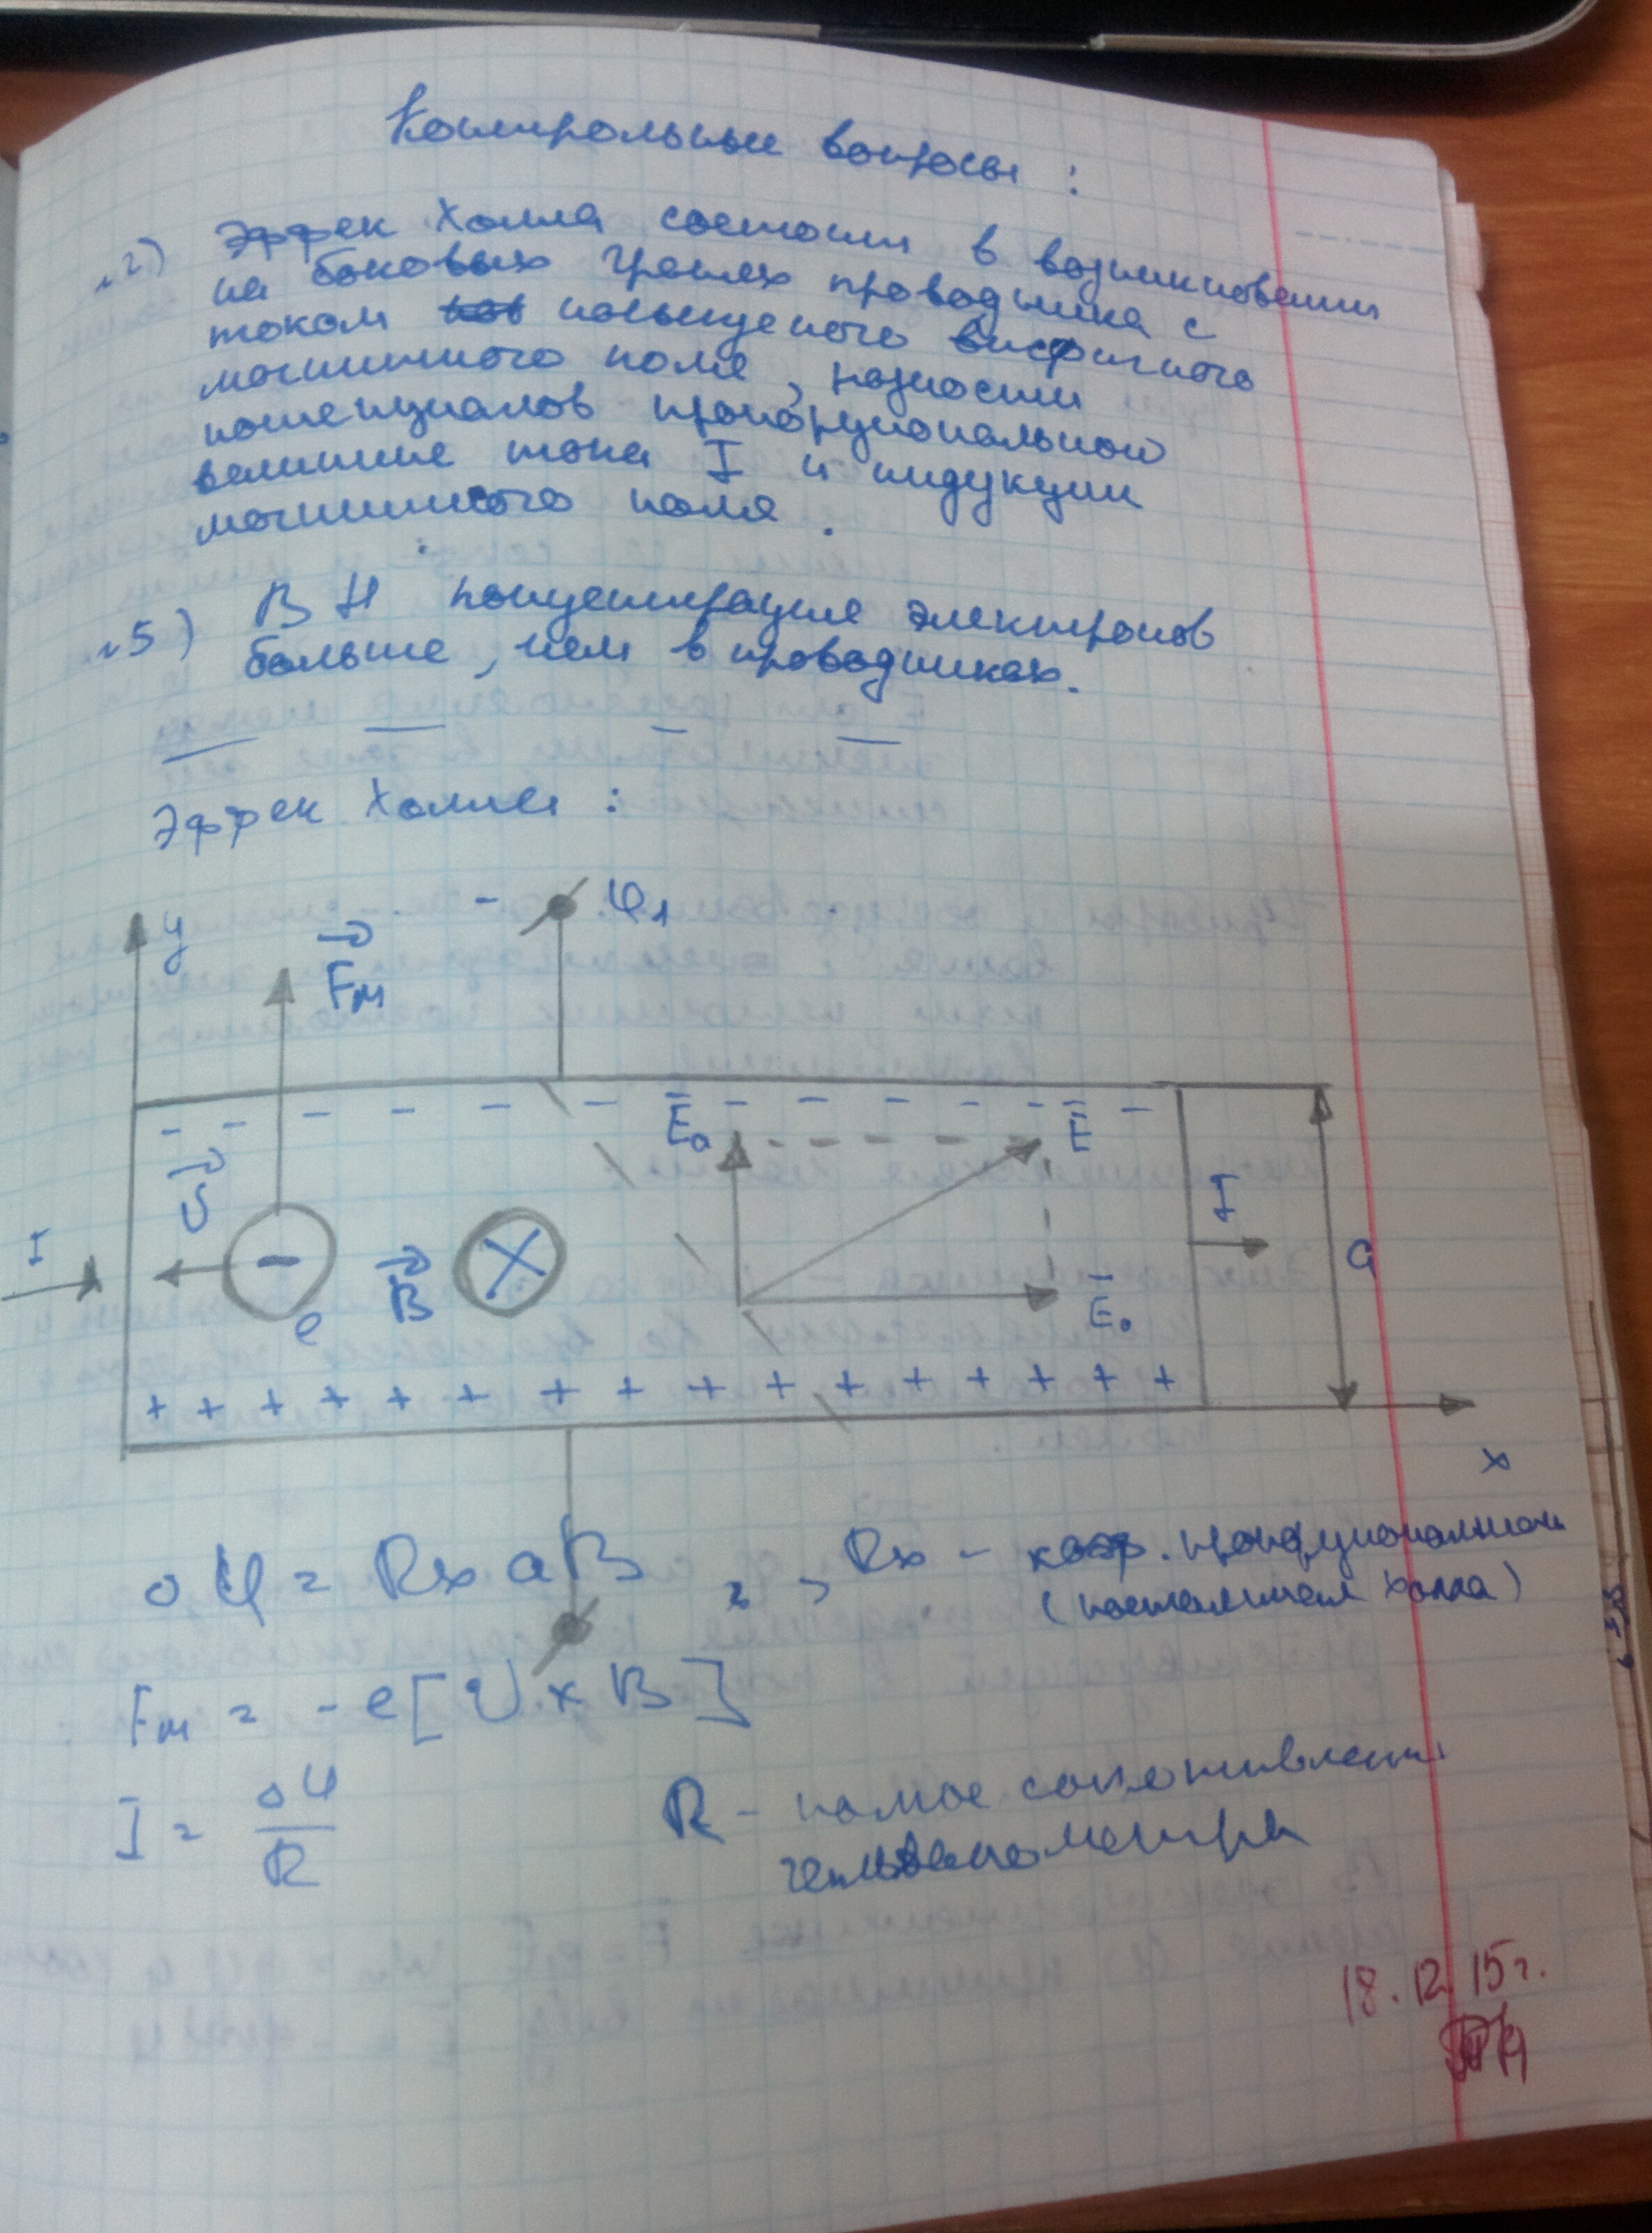 Контрольные вопросы :
№2) Эффек Холла состоит в возникновении
на боковых гранях проводника с
током помещеного внешнего
магнитного поля, разности
потенциалов пропорциональной
величине тока I и индукции
магнитного поля.
№5) В Н концентрация электронов
больше, чем в проводниках.
Эффек Холла :
y
Fм
- φ1
- - - - - - - - - - - -
E
E
υ
I
-
e
B
I
a
E₀
+ + + + + + + + + + + + + + + +
x
φ = Rx a B , Rx - коэф. пропорциональности
(постоянная Холла)
Fм = - e [ υ x B ]
I = φ / R
R - полное сопротивление
гальванометра
18.12.15г.